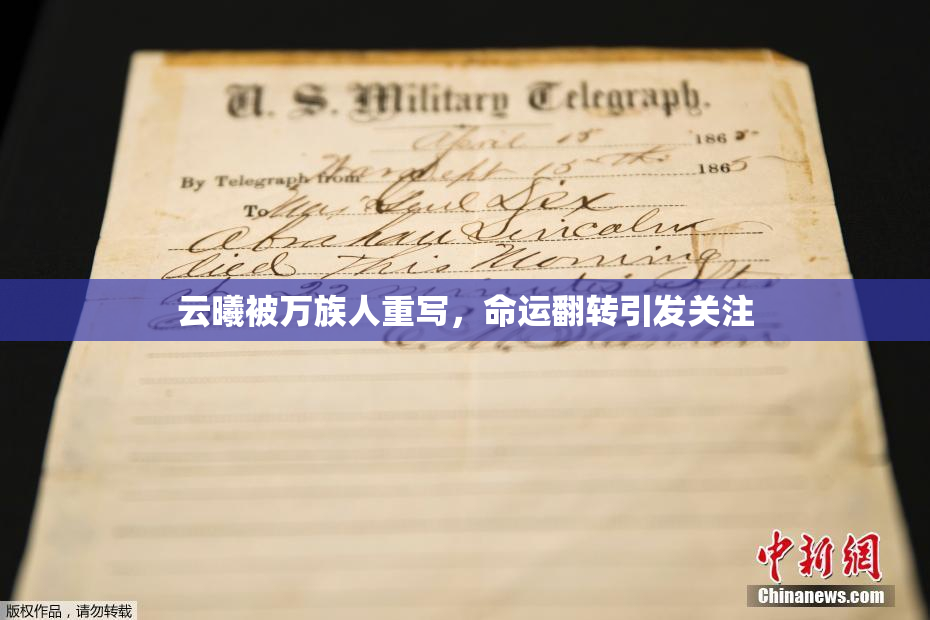 U. S. Military Telegraph.
April 15 1865
By Telegraph from War Dept 15th 1865
To Maj Genl Dix
Abraham Lincoln
died This Morning
at 22 minutes after
云曦被万族人重写，命运翻转引发关注
E. M. Stanton
中新网
Chinanews.com
版权作品，请勿转载